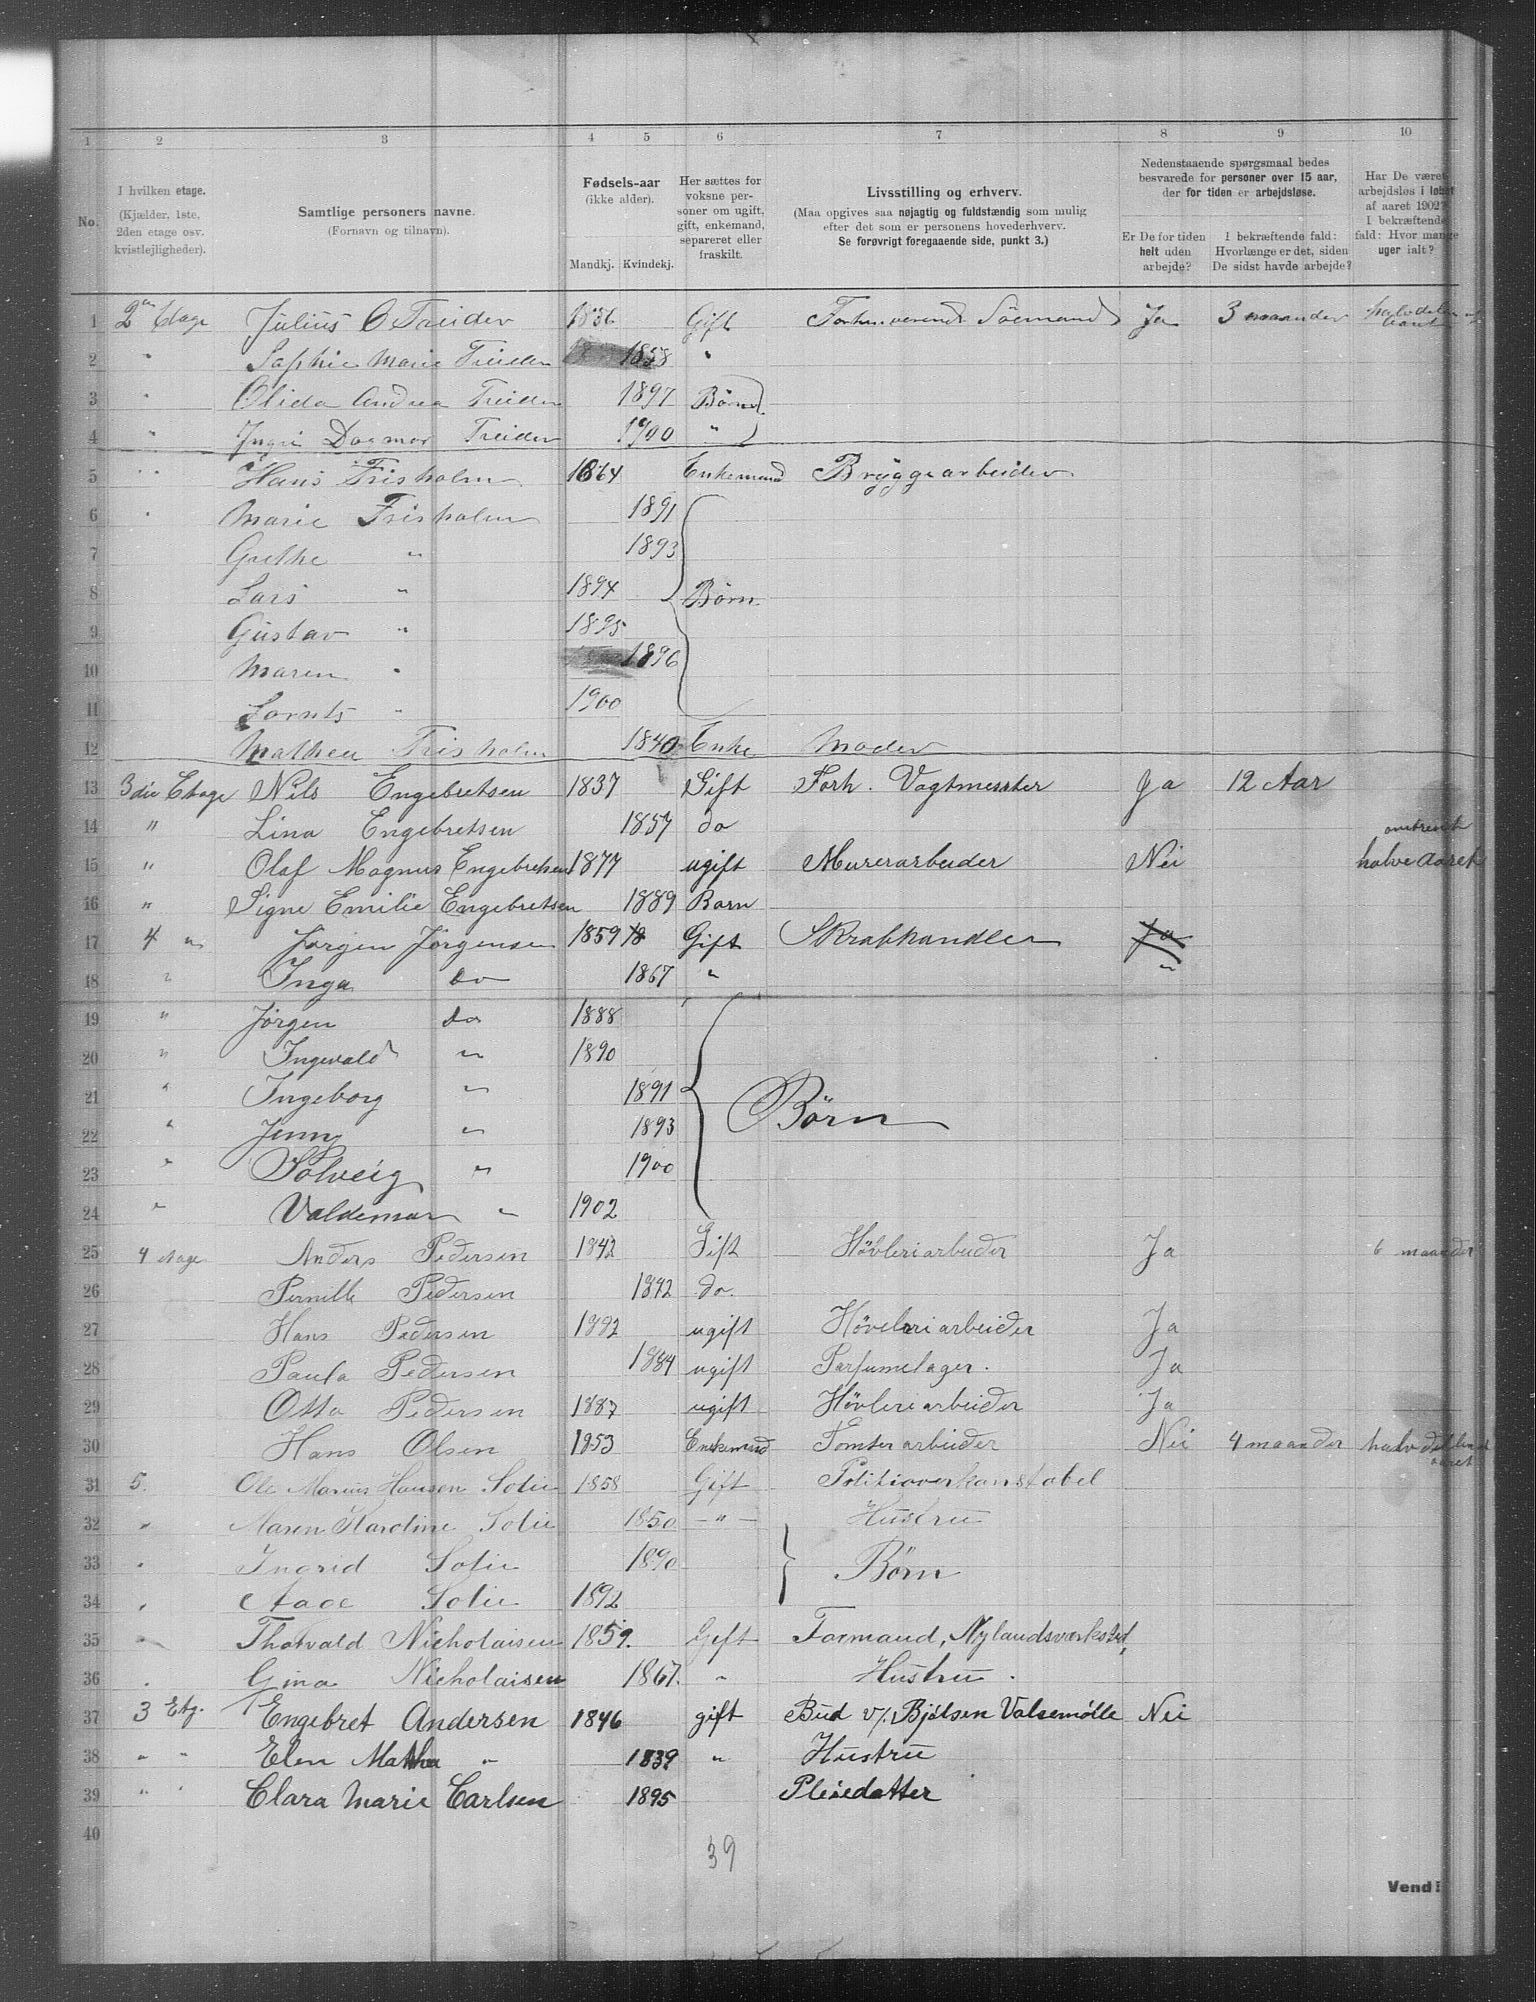 1 2 3 4 5 6 7 8 9 10
No.
I hvilken etage.
(Kjælder, 1ste, 2den etage osv. kvistlejligheder).
Samtlige personers navne.
(Fornavn og tilnavn).
Fødsels-aar
(ikke alder).
Mandkj. Kvindekj.
Her sættes for voksne personer om ugift, gift, enkemand, separeret eller fraskilt.
Livsstilling og erhverv.
(Maa opgives saa nøjagtig og fuldstændig som mulig efter det som er personens hovederhverv.
Se forøvrigt foregaaende side, punkt 3.)
Nedenstaaende spørgsmaal bedes besvarede for personer over 15 aar, der for tiden er arbejdsløse.
Er De for tiden helt uden arbejde?
I bekræftende fald: Hvorlænge er det, siden De sidst havde arbejde?
Har De været arbejdsløs i løbet af aaret 1902? I bekræftende fald: Hvor mange uger ialt?
1 2 Etage Julius O Treider 1836 Gift Forhenværende Söemand Ja 3 maander halvdelen
2 " Sophie Marie Treider 1858 "
3 " Olida Andrea Treider 1897 Børn
4 " Ingri Dagmar Treider 1900 "
5 " Hans Frisholm 1864 Enkemand Bryggearbeider
6 " Marie Frisholm 1891
7 Grethe " 1893
8 Lars " 1894 Børn
9 Gustav " 1895
10 Maren " 1896
11 Lornts " 1900
12 Mathea Frisholm 1840 Enke Moder
13 3die Etage Nils Engebretsen 1837 Gift Forh. Vagtmester Ja 12 Aar
14 " Lina Engebretsen 1857 do omtrent
15 " Olaf Magnus Engebretsen 1877 ugift Murerarbeider Nei halve Aaret
16 " Signe Emilie Engebretsen 1889 Barn
17 4 " Jørgen Jørgensen 1859 18 Gift Skraphandler Ja
18 " Inga do 1867 " "
19 " Jørgen do 1888
20 " Ingevald " 1890
21 " Ingeborg " 1891 Børn
22 " Jenny " 1893
23 " Solveig " 1900
24 " Valdemar " 1902
25 4 etage Anders Pedersen 1842 Gift Høvleriarbeider Ja 6 maander
26 Pernille Pedersen 1842 do.
27 Hans Pedersen 1882 ugift Høvleriarbeider Ja
28 Paula Pedersen 1884 ugift Parfumelager. Ja
29 Otto Pedersen 1887 ugift Høvleriarbeider Ja
30 Hans Olsen 1853 Enkemand Tomtearbeider Nei 4 maander halvdelen aaret
31 5. Ole Marius Hansen Solie 1858 Gift Politioverkonstabel
32 " Maren Karoline Solie 1850 - " - Hustru
33 " Ingrid Solie 1890 Børn
34 " Aage Solie 1892
35 " Thorvald Nicholaisen 1859. Gift Formand, Nylandsværksted,
36 " Gina Nicholaisen 1867. " Hustru.
37 3 Etg. Engebret Andersen 1846 gift Bud v/. Bjølsen Valsemølle Nei
38 " " Elen Mathea " 1839 " Hustru
39 " " Clara Marie Carlsen 1895 Pleiedatter
40
39
Vend!